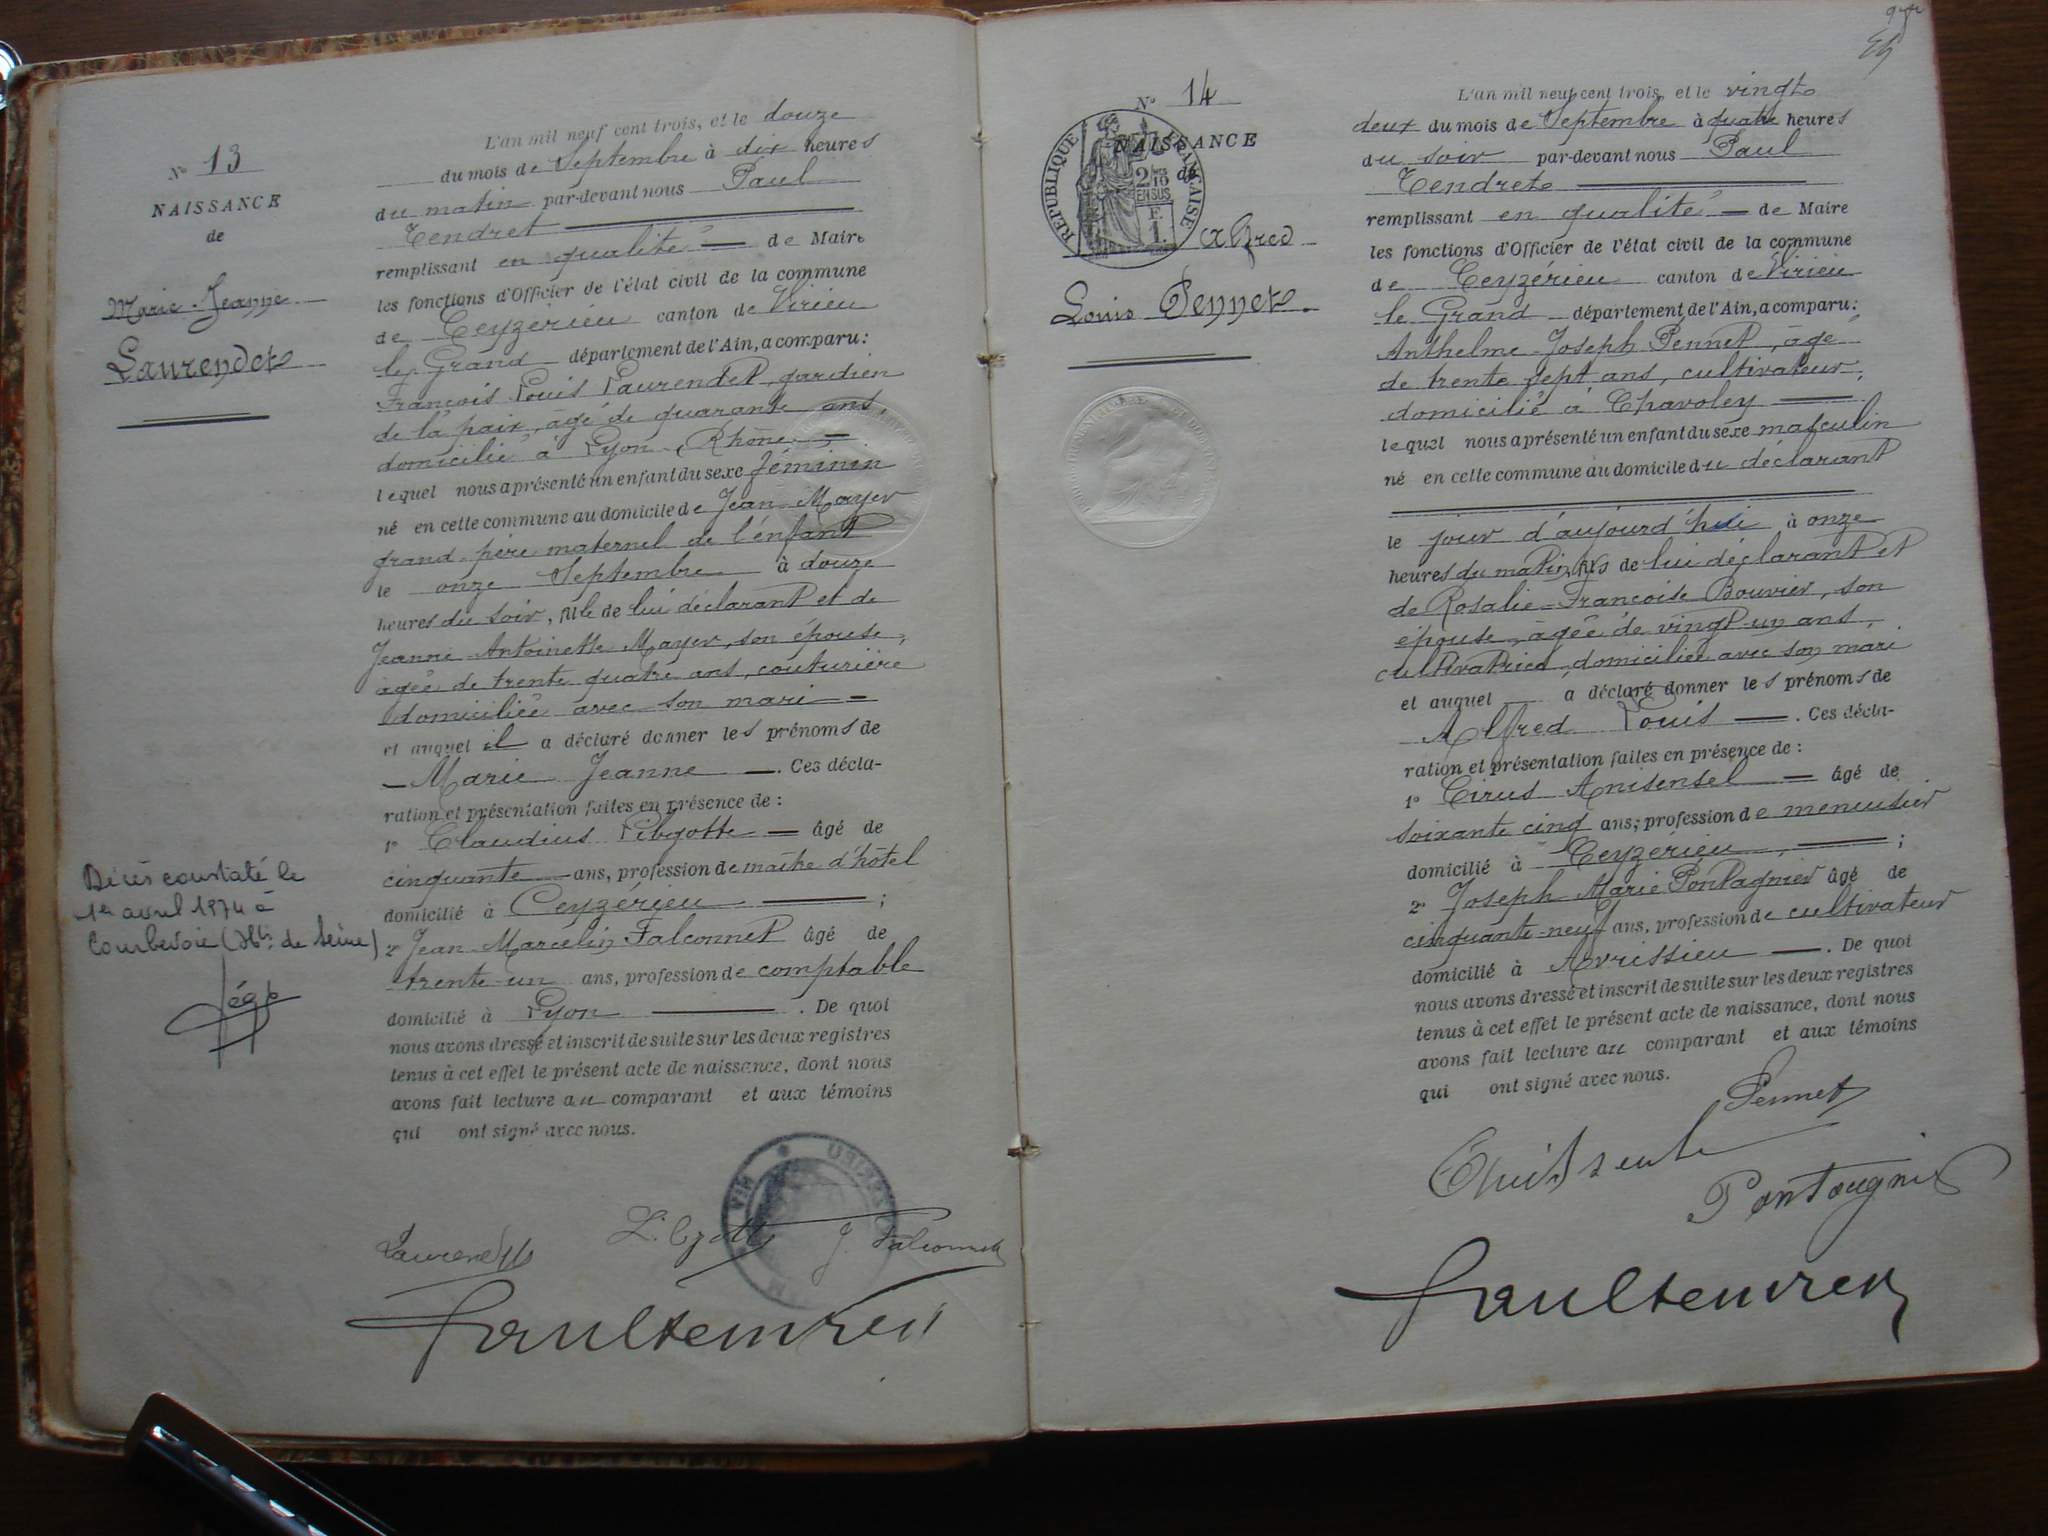 N° 13
NAISSANCE
de
Marie-Jeanne
Laurendet
Décès constaté le
1er avril 1974 à
Courbevoie (Hts de Seine)
L'an mil neuf cent trois, et le douze
du mois de Septembre à dix heures
du matin par-devant nous Paul
Tendret
remplissant en qualité de Maire
les fonctions d'Officier de l'état civil de la commune
de Ceyzérieu canton de Virieu
le Grand département de l'Ain, a comparu :
François Louis Laurendet, gardien
de la paix, âgé de quarante ans,
domicilié à Lyon, Rhône
lequel nous a présenté un enfant du sexe féminin
né en cette commune au domicile de Jean Mayer
grand-père maternel de l'enfant
le onze Septembre à douze
heures du soir, fille de lui déclarant et de
Jeanne Antoinette Mayer, son épouse,
âgée de trente quatre ans, couturière
domiciliée avec son mari
et auquel il a déclaré donner les prénoms de
Marie Jeanne . Ces décla-
ration et présentation faites en présence de :
1° Claudius Libgotte âgé de
cinquante ans, profession de maître d'hôtel
domicilié à Ceyzérieu ;
2° Jean Marcelin Falconnet âgé de
trente-un ans, profession de comptable
domicilié à Lyon . De quoi
nous avons dressé et inscrit de suite sur les deux registres
tenus à cet effet le présent acte de naissance, dont nous
avons fait lecture au comparant et aux témoins
qui ont signé avec nous.
Laurendet J. Falconnet
N° 14
NAISSANCE
de
RÉPUBLIQUE FRANÇAISE
2/10 EN SUS
F. 1.
Alfred
Louis Pennet
L'an mil neuf cent trois, et le vingt
deux du mois de Septembre à quatre heures
du soir par-devant nous Paul
Tendret
remplissant en qualité de Maire
les fonctions d'Officier de l'état civil de la commune
de Ceyzérieu canton de Virieu
le Grand département de l'Ain, a comparu :
Anthelme-Joseph Pennet, âgé
de trente sept ans, cultivateur,
domicilié à Chavoley
lequel nous a présenté un enfant du sexe masculin
né en cette commune au domicile du déclarant
le jour d'aujourd'hui à onze
heures du matin, fils de lui déclarant et
de Rosalie-Françoise Bouvier, son
épouse, âgée de vingt-un ans,
cultivatrice, domiciliée avec son mari
et auquel a déclaré donner les prénoms de
Alfred Louis . Ces décla-
ration et présentation faites en présence de :
1° Cirus Anisensel âgé de
soixante cinq ans; profession de menuisier
domicilié à Ceyzérieu ;
2° Joseph Marie Pontagnier âgé de
cinquante-neuf ans, profession de cultivateur
domicilié à Avrissieu . De quoi
nous avons dressé et inscrit de suite sur les deux registres
tenus à cet effet le présent acte de naissance, dont nous
avons fait lecture au comparant et aux témoins
qui ont signé avec nous.
Pennet